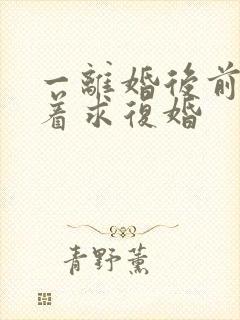 一離婚後前
着求復婚
青野薰